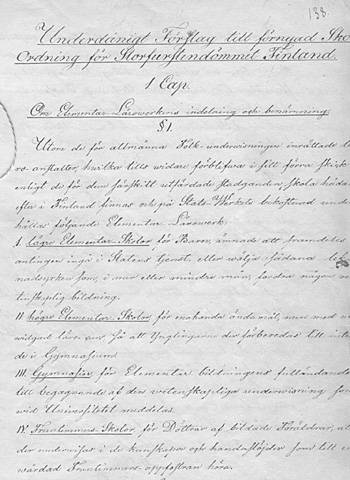 138
Underdånigt Förslag till förnyad Sko
Ordning för Storfurstendömmet Finland.
1 Cap.
Om Elementar Lärowerkens indelning och benämning.
§ 1.
Utom de för allmänna Folk-underwisningen inrättade lä
ro-anstalter, hwilka tills widare förblifwa i sitt förra skick
enligt de för dem särskilt utfärdade stadganden, skola häda
efter i Finland finnas och på Stats-Werkets bekostnad under
hållas följande Elementar Lärowerk:
I lägre Elementar Skolor för Barn, ämnade att framdeles
antingen ingå i Statens tjenst, eller wälja sådana lef
nadsyrken som, i mer eller mindre mån, fordra någon we
tenskaplig bildning.
II högre Elementar Skolor, för enahanda ändamål, men med
widgad läro-kurs, så att Ynglingarne der förberedas till inträ
de i Gymnasium
III. Gymnasier för Elementar bildningens fulländande
till begagnande af den wetenskapliga underwisning som
wid Universitetet meddelas.
IV. Fruntimmers-Skolor, för Döttrar af bildade Föräldrar, att
der underwisas i de kunskaper och handaslöjder som till en
wårdad Fruntimmers-uppfostran höra.